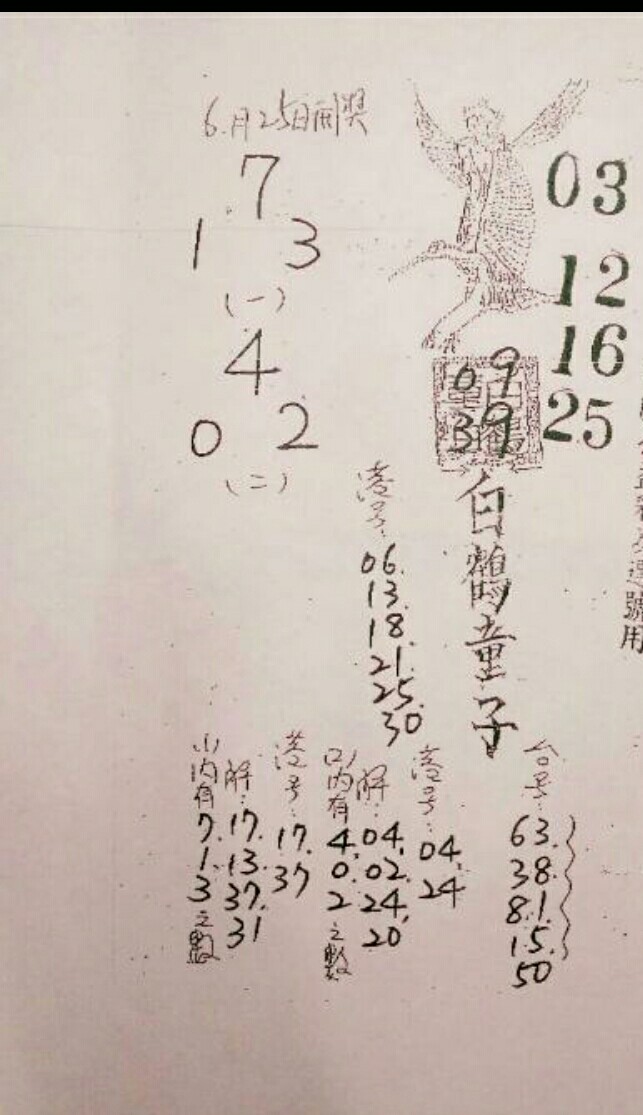 6月25日開奨
7
1 3
(一)
4
0 2
(二)
03
12
16
25
09
39
白鶴童子
港号:
06.
13.
18.
21.
25.
30
台号:
63.
38.
81.
15.
50
港号:
04,
24
解:
04,
02.
24,
20
(2)内有
4,
0.
2
之數
港号:
17.
37
解:
17.
13.
37.
31
(1)内有
7.
1.
3
之數
選號用